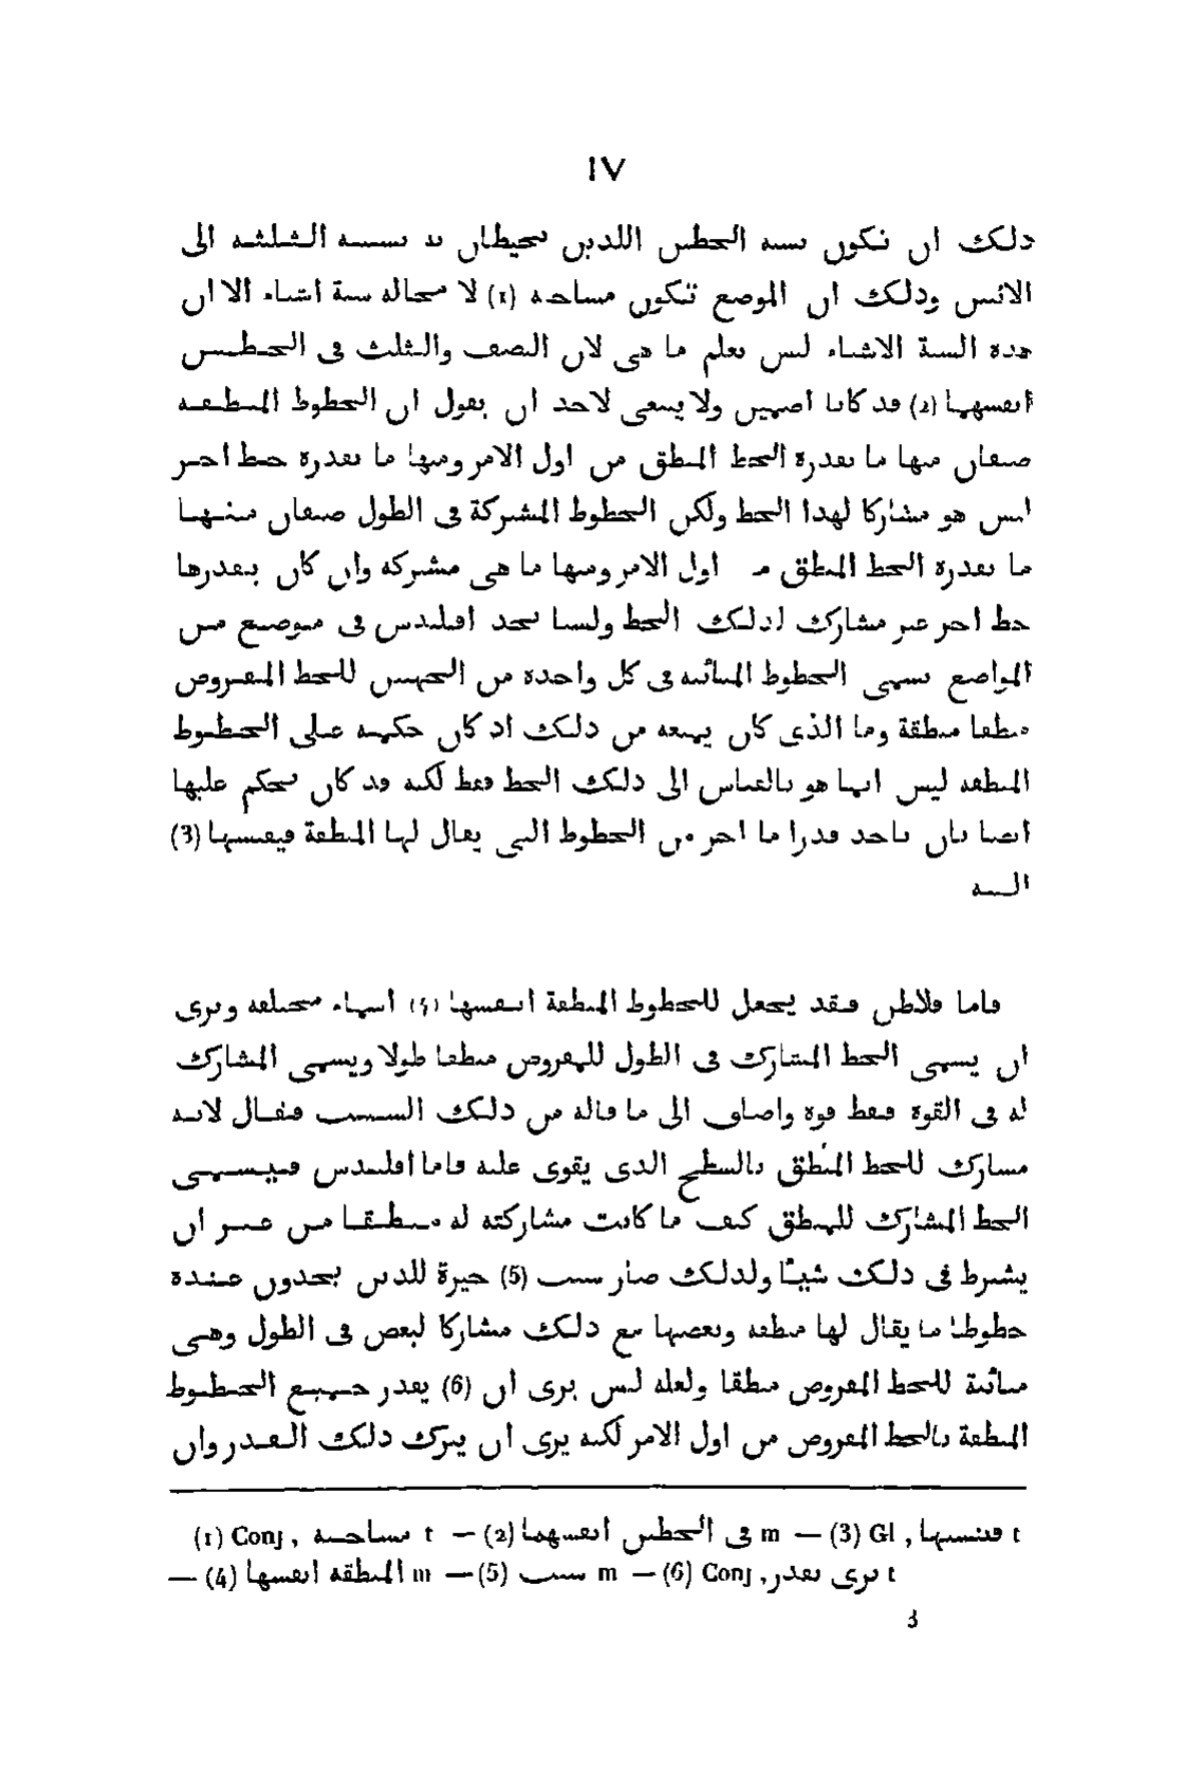 ١٧
ذلك ان تكون نسبة الخطين اللذين يحيطان به نسبة الثلثة الى
الاثنين وذلك ان الموضع تكون مساحته (1) لا محالة ستة اشياء الا ان
هذه الستة الاشياء ليس نعلم ما هى لان النصف والثلث فى الخطين
انفسهما (2) قد كانا اصمين ولا ينبغى لاحد ان يقول ان الخطوط المنطقة
صنفان منها ما يقدره الخط المنطق من اول الامر ومنها ما يقدره خط اخر
ليس هو مشاركا لهذا الخط ولكن الخطوط المشتركة فى الطول صنفان منها
ما يقدره الخط المنطق اول الامر ومنها ما هى مشتركة وان كان يقدرها
خط اخر غير مشارك لذلك الخط ولسنا نجد اقليدس فى موضع من
المواضع يسمى الخطوط المبائنة فى كل واحدة من الجهتين للخط المفروض
منطقا منطقة وما الذى كان يمنعه من ذلك اذ كان حكمه على الخطوط
المنطقة ليس انما هو بالقياس الى ذلك الخط فقط لكنه قد كان يحكم عليها
ايضا بان ياخذ قدرا ما اخر من الخطوط التى يقال لها المنطقة فيقيسها (3)
اليه
فاما فلاطن فقد يجعل للخطوط المنطقة انفسها (4) اسماء مختلفة ونرى
ان يسمى الخط المشارك فى الطول للمفروض منطقا طولا ويسمى المشارك
له فى القوة فقط قوة واضاف الى ما قاله من ذلك السبب فقال لانه
مشارك للخط المنطق بالسطح الذى يقوى عليه فاما اقليدس فيسمى
الخط المشارك للمنطق كيف ما كانت مشاركته له منطقا من غير ان
يشرط فى ذلك شيئا ولذلك صار سبب (5) حيرة للذين يجدون عنده
خطوطا ما يقال لها منطقة وبعضها مع ذلك مشاركا لبعض فى الطول وهى
مبائنة للخط المفروض منطقا ولعله ليس يرى ان (6) يقدر جميع الخطوط
المنطقة بالخط المفروض من اول الامر لكنه يرى ان يترك ذلك القدر وان
(1) Conj, مساحة t — (2) فى الخطين انفسهما m — (3) Gl, فنسبها t
— (4) المنطقة انفسها m — (5) سبب m — (6) Conj, يرى يقدر t
3